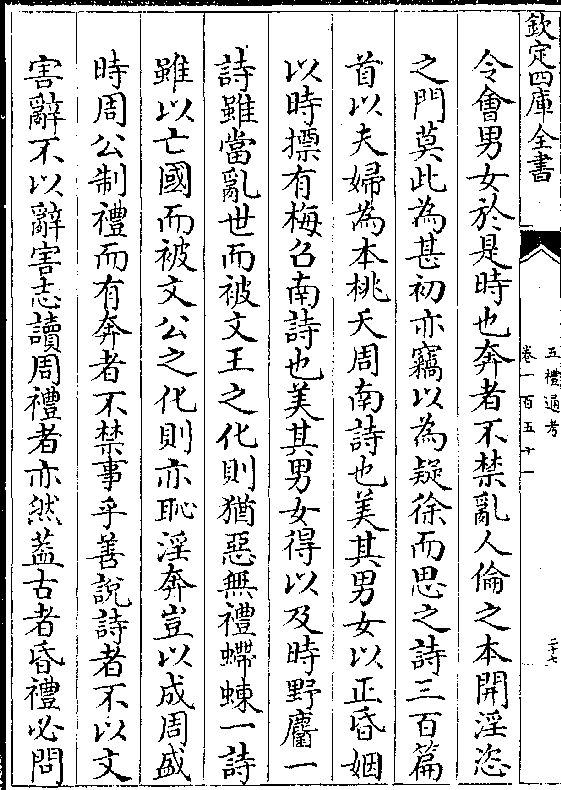 欽定四庫全書
五禮通考
卷一百五十一
二十七
令會男女於是時也奔者不禁亂人倫之本開淫恣
之門莫此為甚初亦竊以為疑徐而思之詩三百篇
首以夫婦為本桃夭周南詩也美其男女以正昏姻
以時摽有梅召南詩也美其男女得以及時野麕一
詩雖當亂世而被文王之化則猶惡無禮蝃蝀一詩
雖以亡國而被文公之化則亦恥淫奔豈以成周盛
時周公制禮而有奔者不禁事乎善說詩者不以文
害辭不以辭害志讀周禮者亦然葢古者昏禮必問